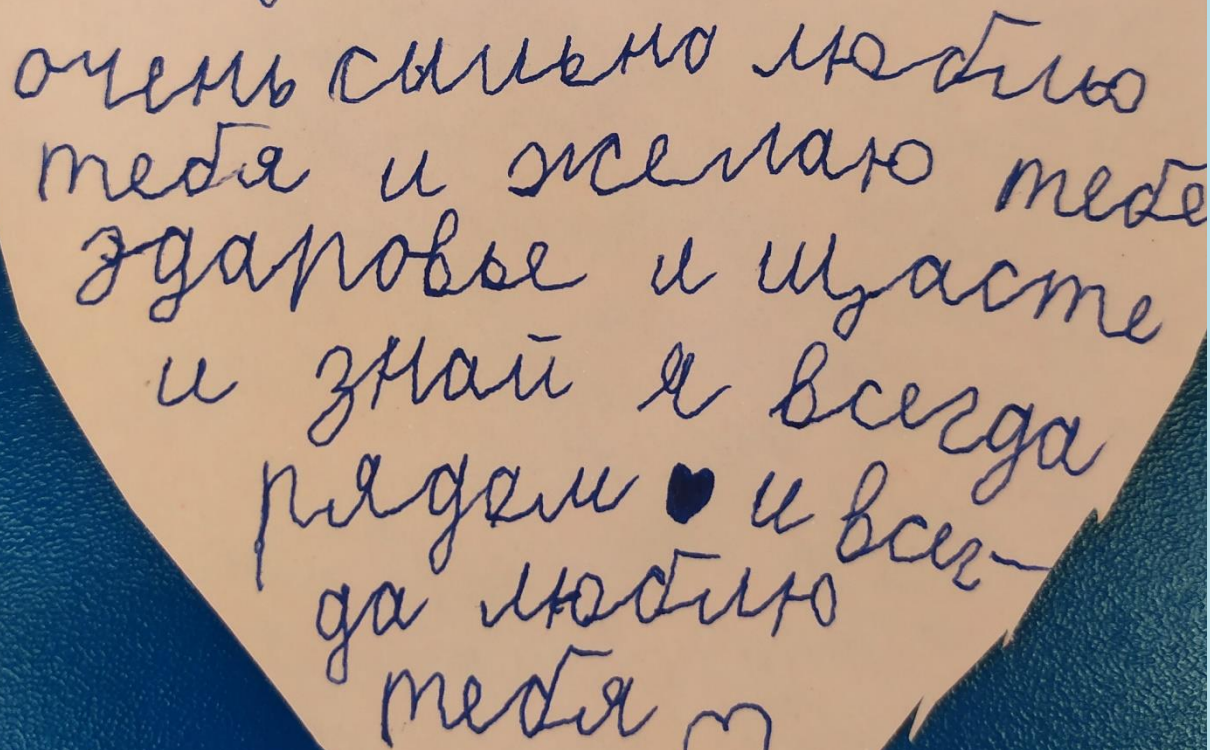 очень сыльно люблю
тебя и желаю тебе
здаровье и щасте
и знай я всегда
рядом ♥ и всег-
да люблю
тебя ♡